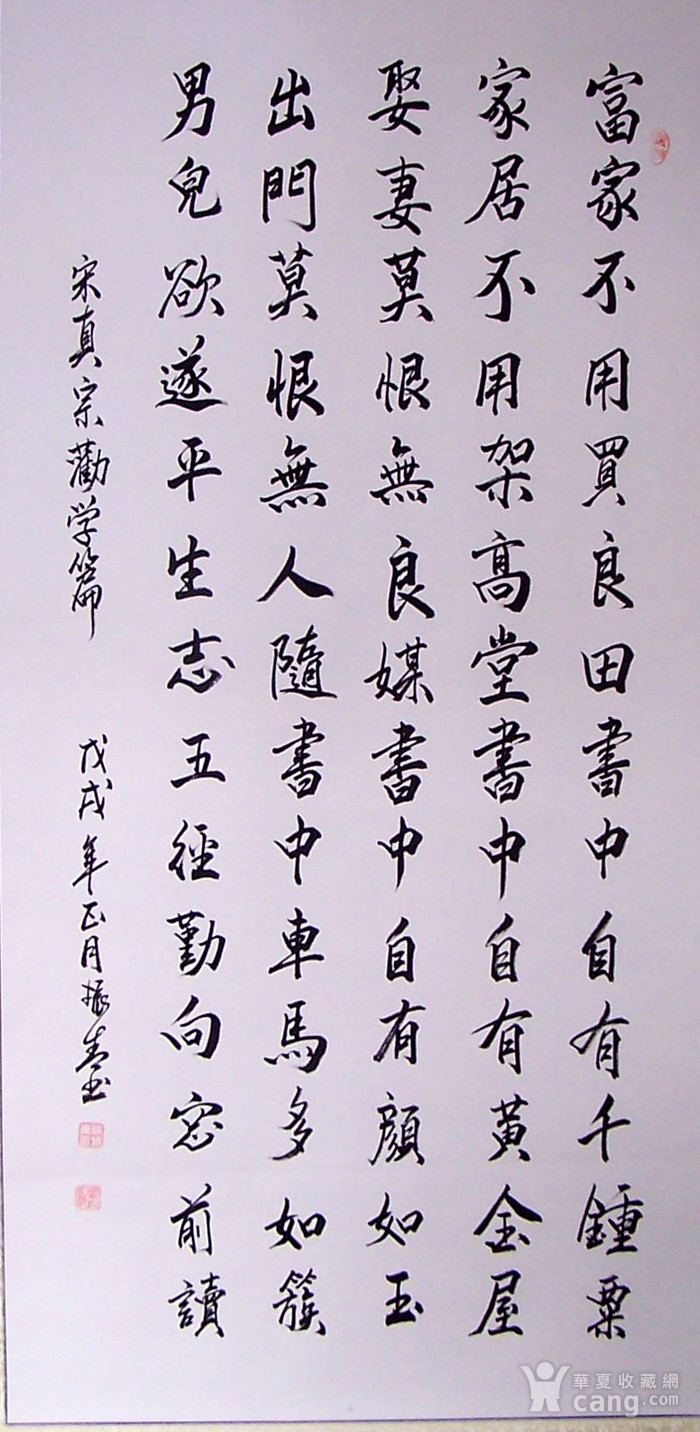 富家不用買良田書中自有千鍾粟
家居不用架高堂書中自有黃金屋
娶妻莫恨無良媒書中自有顏如玉
出門莫恨無人隨書中車馬多如簇
男兒欲遂平生志五徑勤向窓前讀
宋真宗勸学篇
戊戌年正月振書
華夏收藏網
cang.com